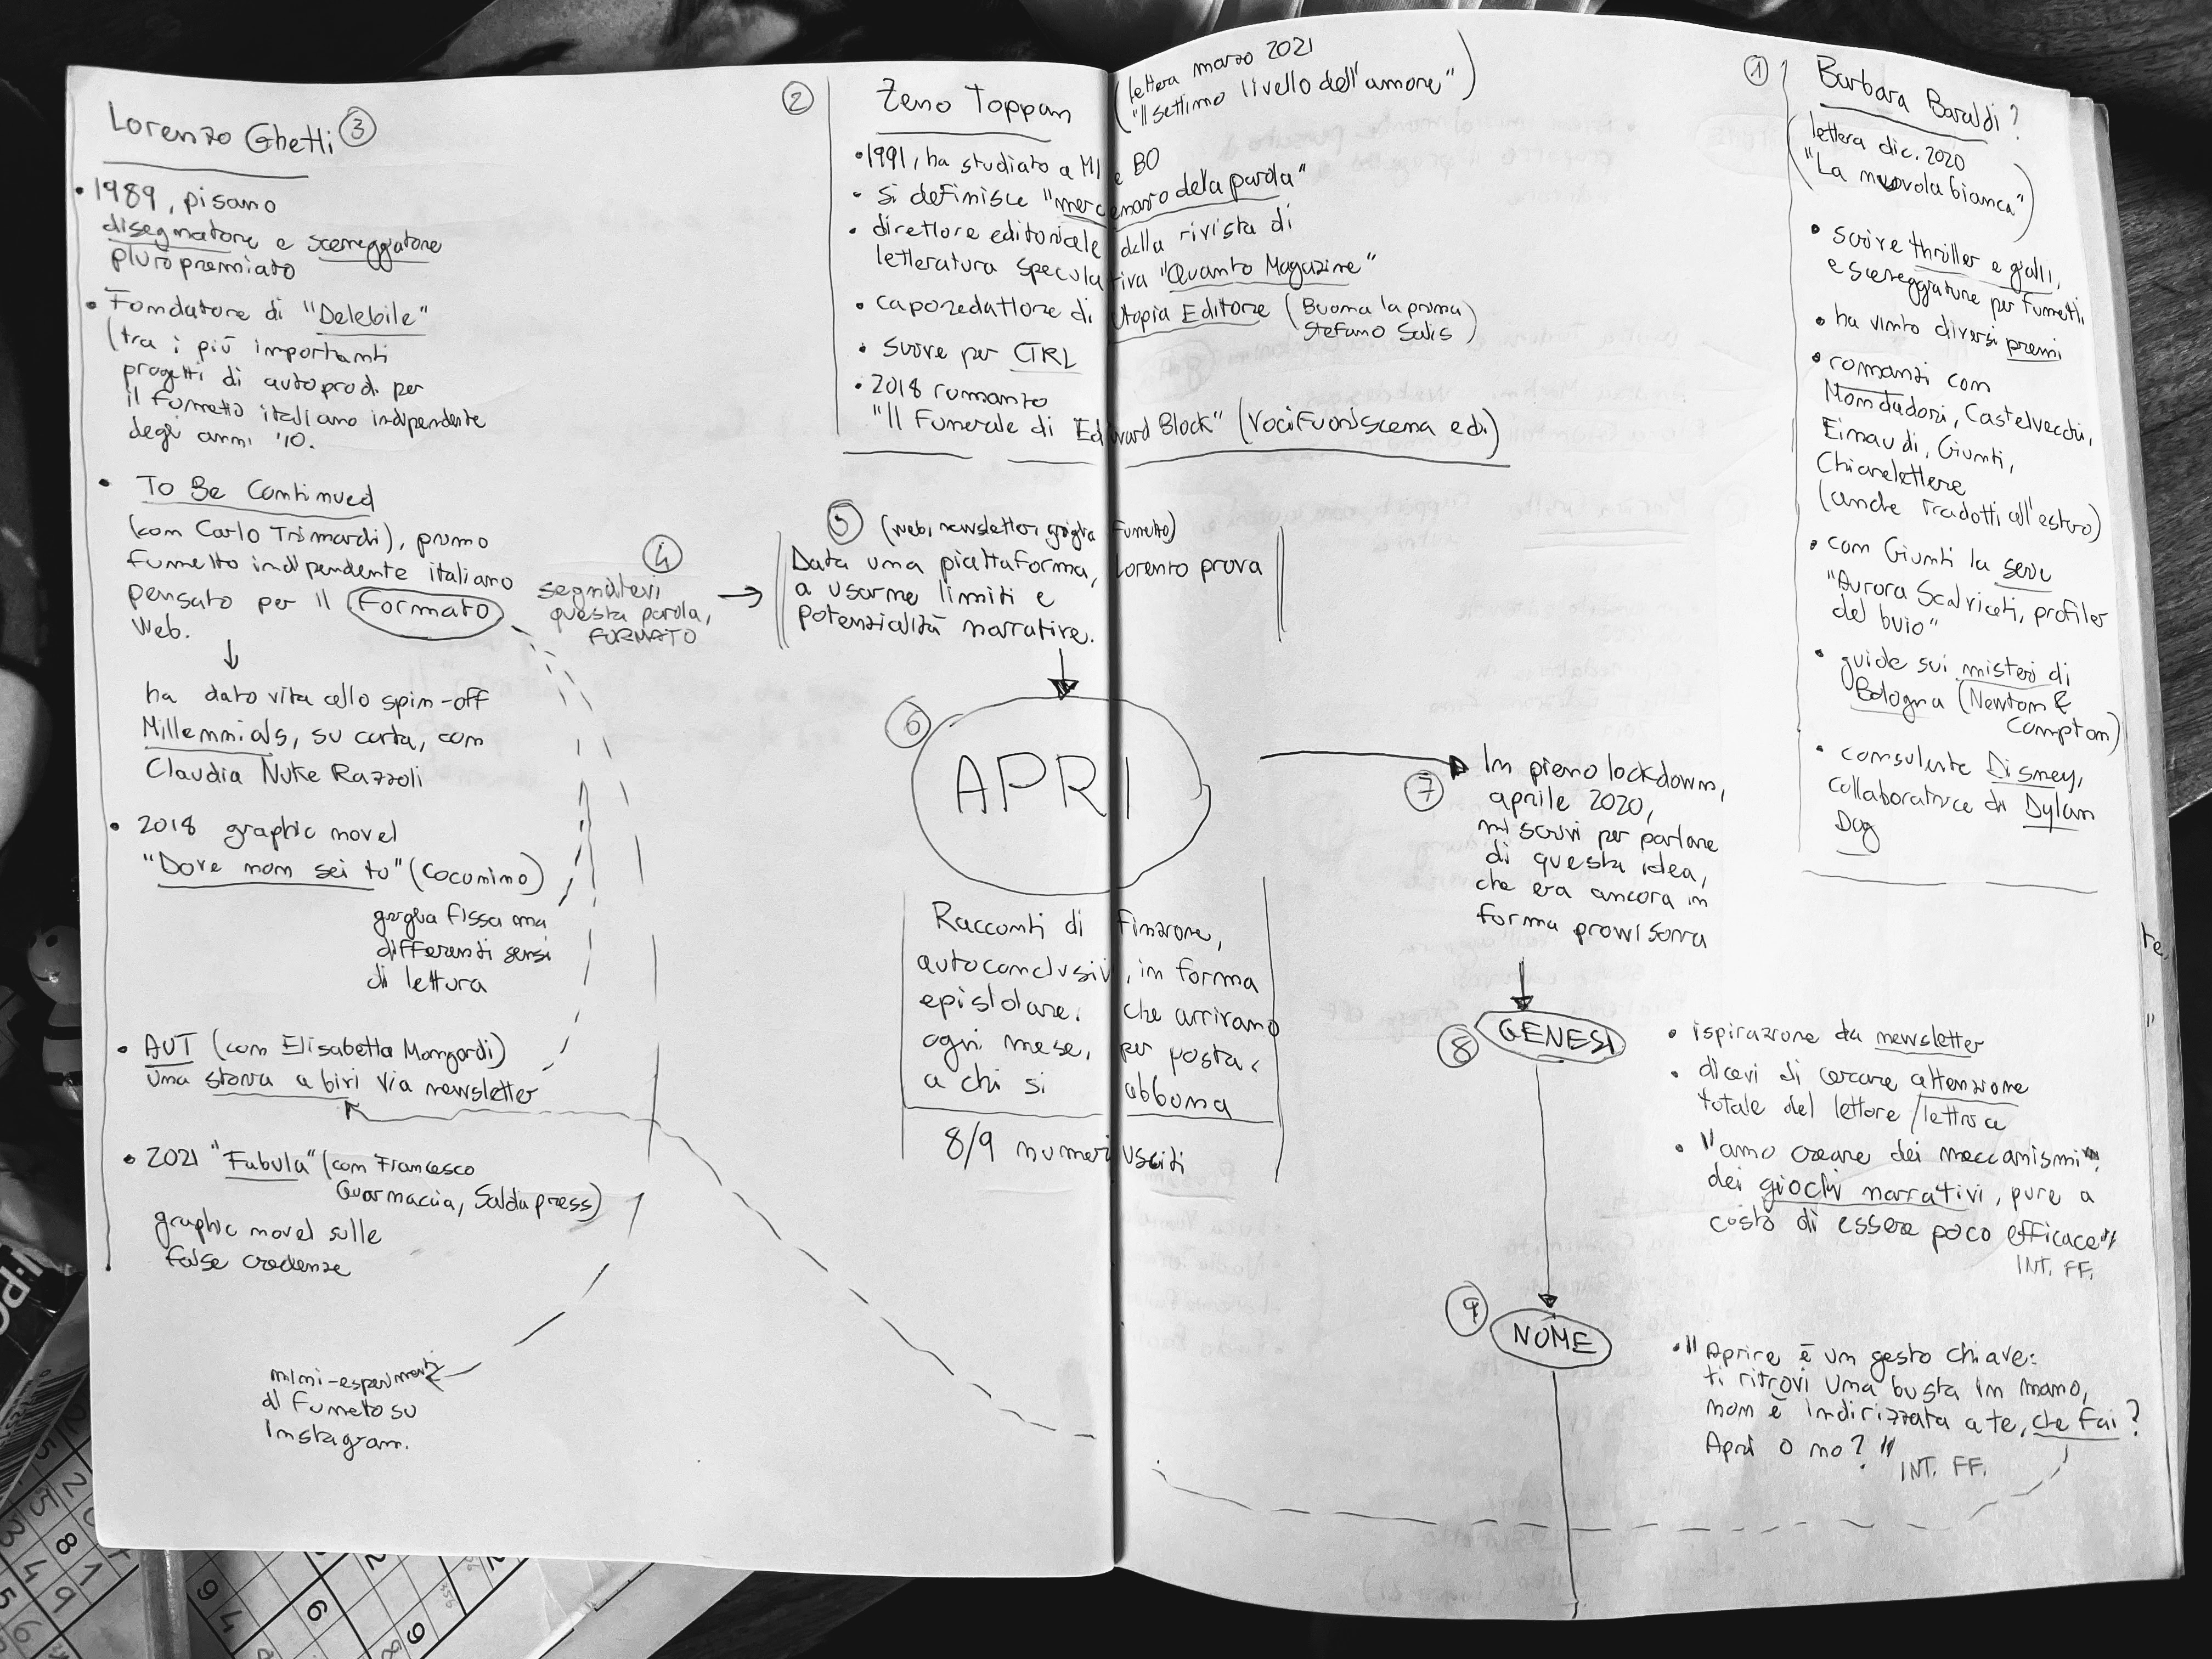 Lorenzo Ghetti ③
• 1989, pisano
disegnatore e sceneggiatore
pluripremiato
• Fondatore di "Delebile"
(tra i più importanti
progetti di autoprod. per
il fumetto italiano indipendente
degli anni '10.
• To Be Continued
(con Carlo Trimardi), primo
fumetto indipendente italiano
pensato per il Formato
Web.
↓
ha dato vita allo spin-off
Millennials, su carta, con
Claudia Nuke Razzoli
• 2018 graphic novel
"Dove non sei tu" (Coconino)
griglia fissa ma
differenti sensi
di lettura
• AUT (con Elisabetta Mongardi)
una storia a bivi via newsletter
• 2021 "Fabula" (con Francesco
Guarnaccia, Saldapress)
graphic novel sulle
false credenze
mini-esperimenti
di fumetto su
Instagram.
④
segnatevi
questa parola,
FORMATO
②
Zeno Toppan
(lettera marzo 2021
"Il settimo livello dell'amore")
• 1991, ha studiato a MI e BO
• si definisce "mercenario della parola"
• direttore editoriale della rivista di
letteratura speculativa "Quanto Magazine"
• caporedattore di Utopia Editore (Buona la prima
Stefano Salis)
• scrive per CTRL
• 2018 romanzo
"Il Funerale di Edward Block" (Vocifuoriscena ed.)
⑤ (web, newsletter, griglia fumetto)
Data una piattaforma, Lorenzo prova
a usarne limiti e
potenzialità narrative.
⑥
APRI
Racconti di finzione,
autoconclusivi, in forma
epistolare, che arrivano
ogni mese, per posta,
a chi si abbona
8/9 numeri usciti
①
Barbara Baraldi?
(lettera dic. 2020
"La nuvola bianca")
• scrive thriller e gialli,
e sceneggiature per fumetti.
• ha vinto diversi premi
• romanzi con
Mondadori, Castelvecchi,
Einaudi, Giunti,
Chiarelettere
(anche tradotti all'estero)
• con Giunti la serie
"Aurora Scalviati, profiler
del buio"
• guide sui misteri di
Bologna (Newton &
Compton)
• consulente Disney,
collaboratrice di Dylan
Dog
⑦
In pieno lockdown,
aprile 2020,
mi scrivi per parlare
di questa idea,
che era ancora in
forma provvisoria
⑧ GENESI
• ispirazione da newsletter
• dicevi di cercare attenzione
totale del lettore/lettrice
• "amo creare dei meccanismi",
dei giochi narrativi, pure a
costo di essere poco efficace"
INT. FF.
⑨ NOME
• "Aprire è un gesto chiave:
ti ritrovi una busta in mano,
non è indirizzata a te, che fai?
Apri o no?"
INT. FF.